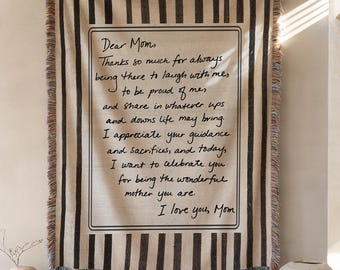 Dear Mom,
Thanks so much for always
being there to laugh with me,
to be proud of me,
and share in whatever ups
and downs life may bring.
I appreciate your guidance
and sacrifices, and today,
I want to celebrate you
for being the wonderful
mother you are.
I love you, Mom